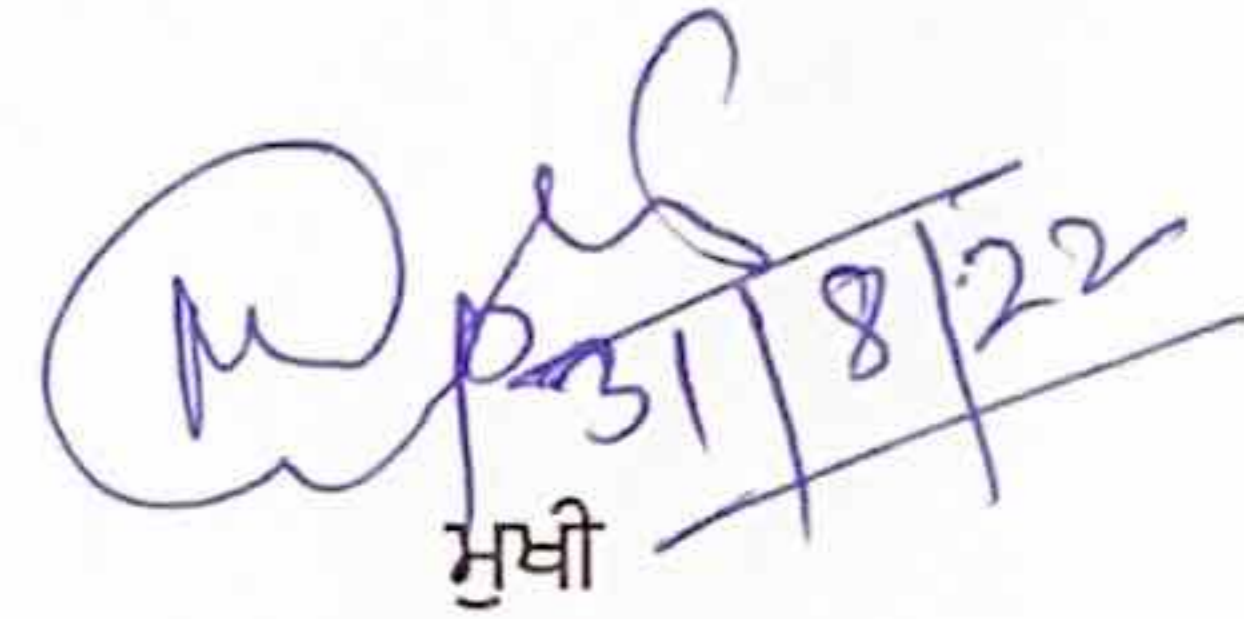 31|8|22
ਮੁਖੀ